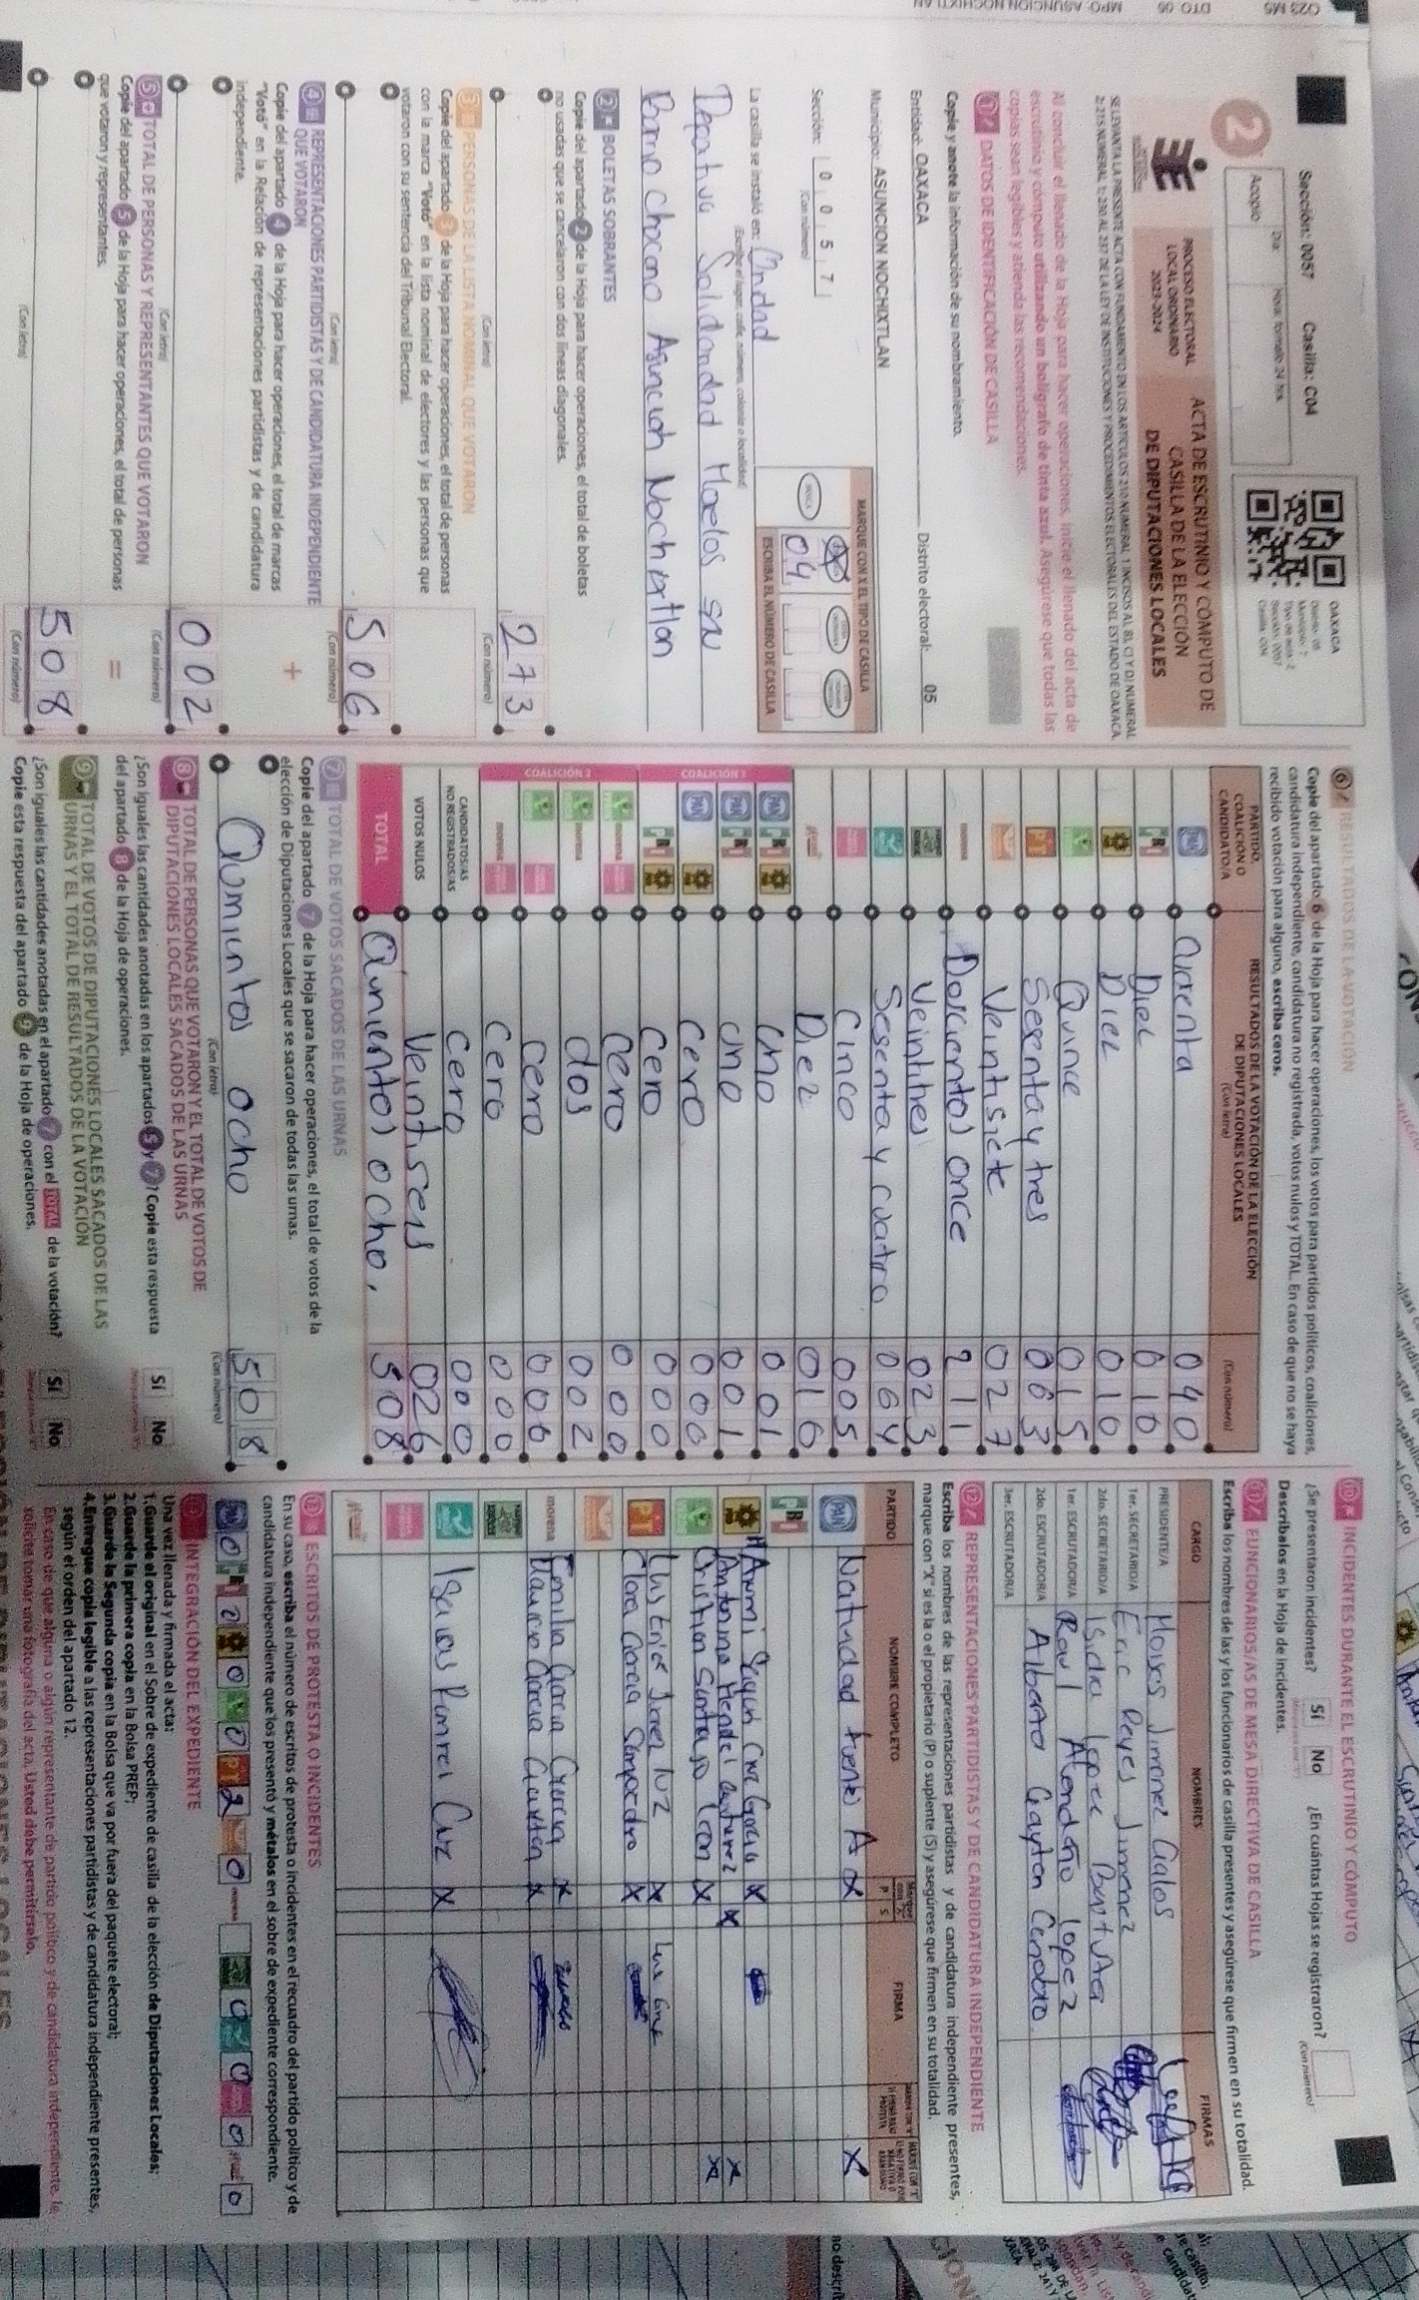 Sección: 0057 Casilla: C04
OAXACA
2
Acopio
Día:
Hora: formato 24 hrs
PROCESO ELECTORAL
LOCAL ORDINARIO
2023-2024
ACTA DE ESCRUTINIO Y CÓMPUTO DE
CASILLA DE LA ELECCIÓN
DE DIPUTACIONES LOCALES
Al concluir el llenado de la Hoja para hacer operaciones, inicie el llenado del acta de
escrutinio y cómputo utilizando un bolígrafo de tinta azul. Asegúrese que todas las
copias sean legibles y atienda las recomendaciones.
1 DATOS DE IDENTIFICACIÓN DE CASILLA
Copie y anote la información de su nombramiento.
Entidad: OAXACA Distrito electoral: 05
Municipio: ASUNCION NOCHIXTLAN
Sección: 0 0 5 7
(Con número)
MARQUE CON X EL TIPO DE CASILLA
ESCRIBA EL NÚMERO DE CASILLA
04
La casilla se instaló en: Unidad
Deportiva Solidaridad Morelos SN
Barrio Chocano Asunción Nochixtlan
2 BOLETAS SOBRANTES
Copie del apartado 2 de la Hoja para hacer operaciones, el total de boletas
no usadas que se cancelaron con dos líneas diagonales.
273
(Con letra) (Con número)
3 PERSONAS DE LA LISTA NOMINAL QUE VOTARON
Copie del apartado 3 de la Hoja para hacer operaciones, el total de personas
con la marca "Votó" en la lista nominal de electores y las personas que
votaron con su sentencia del Tribunal Electoral.
506
(Con letra) (Con número)
4 REPRESENTACIONES PARTIDISTAS Y DE CANDIDATURA INDEPENDIENTE
QUE VOTARON
Copie del apartado 4 de la Hoja para hacer operaciones, el total de marcas
"Votó" en la Relación de representaciones partidistas y de candidatura
independiente.
+
002
(Con letra) (Con número)
5 TOTAL DE PERSONAS Y REPRESENTANTES QUE VOTARON
Copie del apartado 5 de la Hoja para hacer operaciones, el total de personas
que votaron y representantes.
=
508
(Con letra) (Con número)
6 RESULTADOS DE LA VOTACIÓN
Copie del apartado 6 de la Hoja para hacer operaciones, los votos para partidos políticos, coaliciones,
candidatura independiente, candidatura no registrada, votos nulos y TOTAL. En caso de que no se haya
recibido votación para alguno, escriba ceros.
PARTIDO,
COALICIÓN O
CANDIDATO/A
RESULTADOS DE LA VOTACIÓN DE LA ELECCIÓN
DE DIPUTACIONES LOCALES
(Con letra)
(Con número)
PAN cuarenta 040
PRI Diez 010
PRD Diez 010
Quince 015
PT Sesenta y tres 063
Veintisiete 027
morena Dorcientos once 211
Veintitres 023
Sesenta y cuatro 064
Cinco 005
Diez 016
COALICIÓN 1
PAN PRI PRD Uno 001
PAN PRI uno 001
PAN PRD Cero 000
PRI PRD Cero 000
COALICIÓN 2
morena Cero 000
morena dos 002
Cero 000
morena Cero 000
CANDIDATOS/AS
NO REGISTRADOS/AS
Cero 000
VOTOS NULOS Veintiseis 026
TOTAL Quinientos ocho, 508
7 TOTAL DE VOTOS SACADOS DE LAS URNAS
Copie del apartado 7 de la Hoja para hacer operaciones, el total de votos de la
elección de Diputaciones Locales que se sacaron de todas las urnas.
Quinientos ocho 508
(Con letra) (Con número)
8 TOTAL DE PERSONAS QUE VOTARON Y EL TOTAL DE VOTOS DE
DIPUTACIONES LOCALES SACADOS DE LAS URNAS
¿Son iguales las cantidades anotadas en los apartados 5 y 7? Copie esta respuesta
del apartado 8 de la Hoja de operaciones.
Sí No
9 TOTAL DE VOTOS DE DIPUTACIONES LOCALES SACADOS DE LAS
URNAS Y EL TOTAL DE RESULTADOS DE LA VOTACIÓN
¿Son iguales las cantidades anotadas en el apartado 7 con el TOTAL de la votación?
Copie esta respuesta del apartado 9 de la Hoja de operaciones.
Sí No
10 INCIDENTES DURANTE EL ESCRUTINIO Y CÓMPUTO
¿Se presentaron incidentes? Sí No ¿En cuántas Hojas se registraron?
(Con número)
Descríbalos en la Hoja de Incidentes.
11 FUNCIONARIOS/AS DE MESA DIRECTIVA DE CASILLA
Escriba los nombres de las y los funcionarios de casilla presentes y asegúrese que firmen en su totalidad.
CARGO NOMBRES FIRMAS
PRESIDENTE/A Moises Jimenez Galos
1er. SECRETARIO/A Eric Reyes Jimenez
2do. SECRETARIO/A Isidra Lopez
1er. ESCRUTADOR/A Raul Lopez
2do. ESCRUTADOR/A Alberto Gayton
3er. ESCRUTADOR/A
12 REPRESENTACIONES PARTIDISTAS Y DE CANDIDATURA INDEPENDIENTE
Escriba los nombres de las representaciones partidistas y de candidatura independiente presentes,
marque con "X" si es la o el propietario (P) o suplente (S) y asegúrese que firmen en su totalidad.
PARTIDO NOMBRE COMPLETO P S FIRMA
PAN Natividad fuentes A X X
PRI Cruz Garcia X
PRD Antonina X X
Cristian X X
PT Luis Eric X
Clara Garcia Sampedro X
morena Emilia Garcia Garcia X
Garcia X
Isaias Ramirez Cruz X
13 ESCRITOS DE PROTESTA O INCIDENTES
En su caso, escriba el número de escritos de protesta o incidentes en el recuadro del partido político y de
candidatura independiente que los presentó y métalos en el sobre de expediente correspondiente.
14 INTEGRACIÓN DEL EXPEDIENTE
Una vez llenada y firmada el acta:
1.Guarde el original en el Sobre de expediente de casilla de la elección de Diputaciones Locales;
2.Guarde la primera copia en la Bolsa PREP;
3.Guarde la Segunda copia en la Bolsa que va por fuera del paquete electoral;
4.Entregue copia legible a las representaciones partidistas y de candidatura independiente presentes,
según el orden del apartado 12.
En caso de que alguna o algún representante de partido político y de candidatura independiente, le
solicite tomar una fotografía del acta, Usted debe permitírselo.